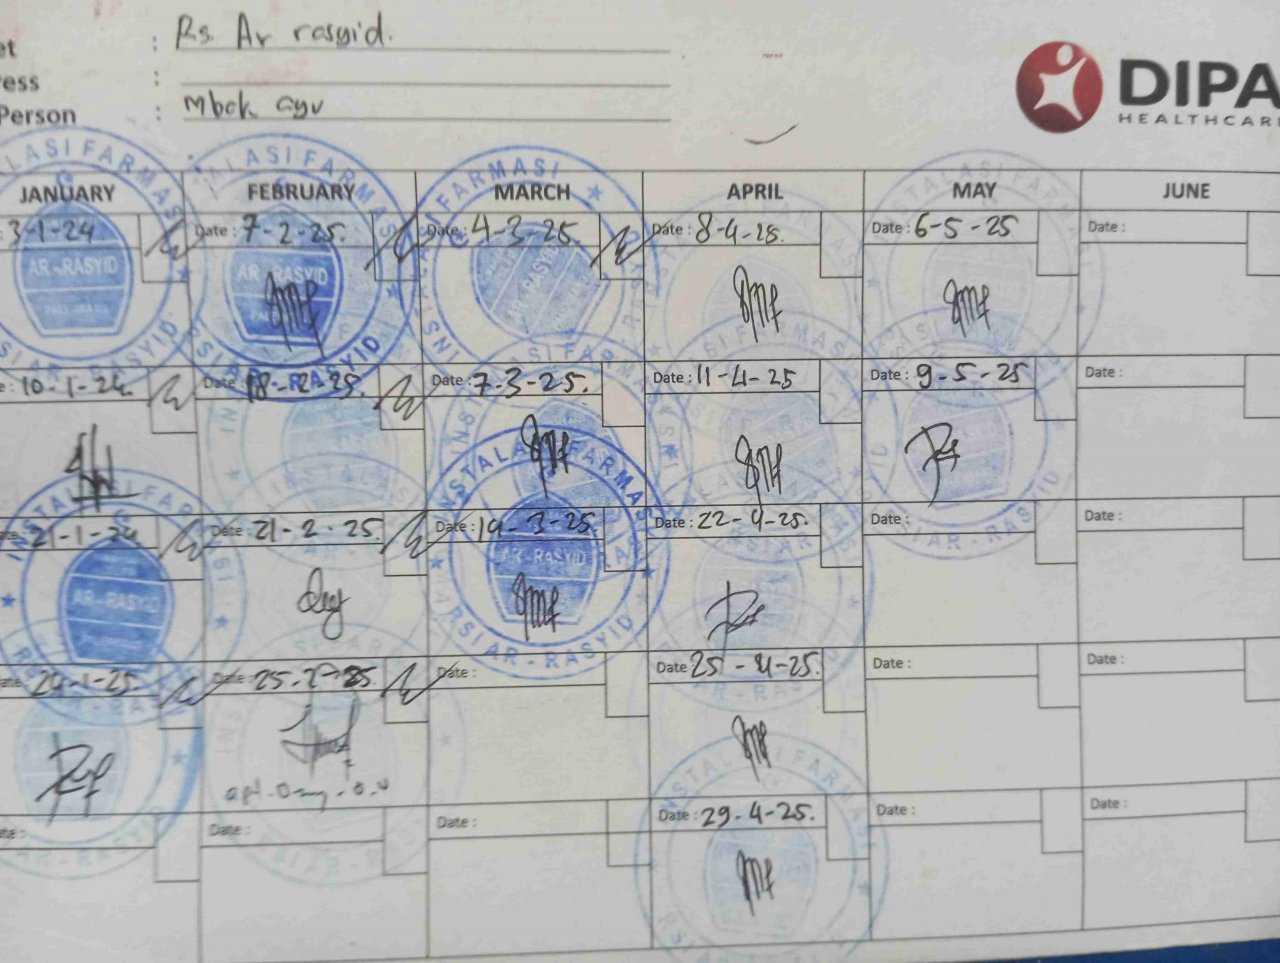 : Rs. Ar rasyid.
ress :
Person : Mbok ayu
DIPA
HEALTHCARE
JANUARY FEBRUARY MARCH APRIL MAY JUNE
3-1-24 Date : 7-2-25. Date : 4-3-25. Date : 8-4-25. Date : 6-5-25 Date :
10-1-24. Date : 18-2-25. Date : 7-3-25. Date : 11-4-25 Date : 9-5-25 Date :
21-1-24 Date : 21-2-25. Date : 14-3-25. Date : 22-4-25. Date : Date :
24-1-25. Date : 25-2-25. Date : Date : 25-4-25. Date : Date :
Date : Date : Date : 29-4-25. Date : Date :
INSTALASI FARMASI
AR-RASYID
RSI AR-RASYID